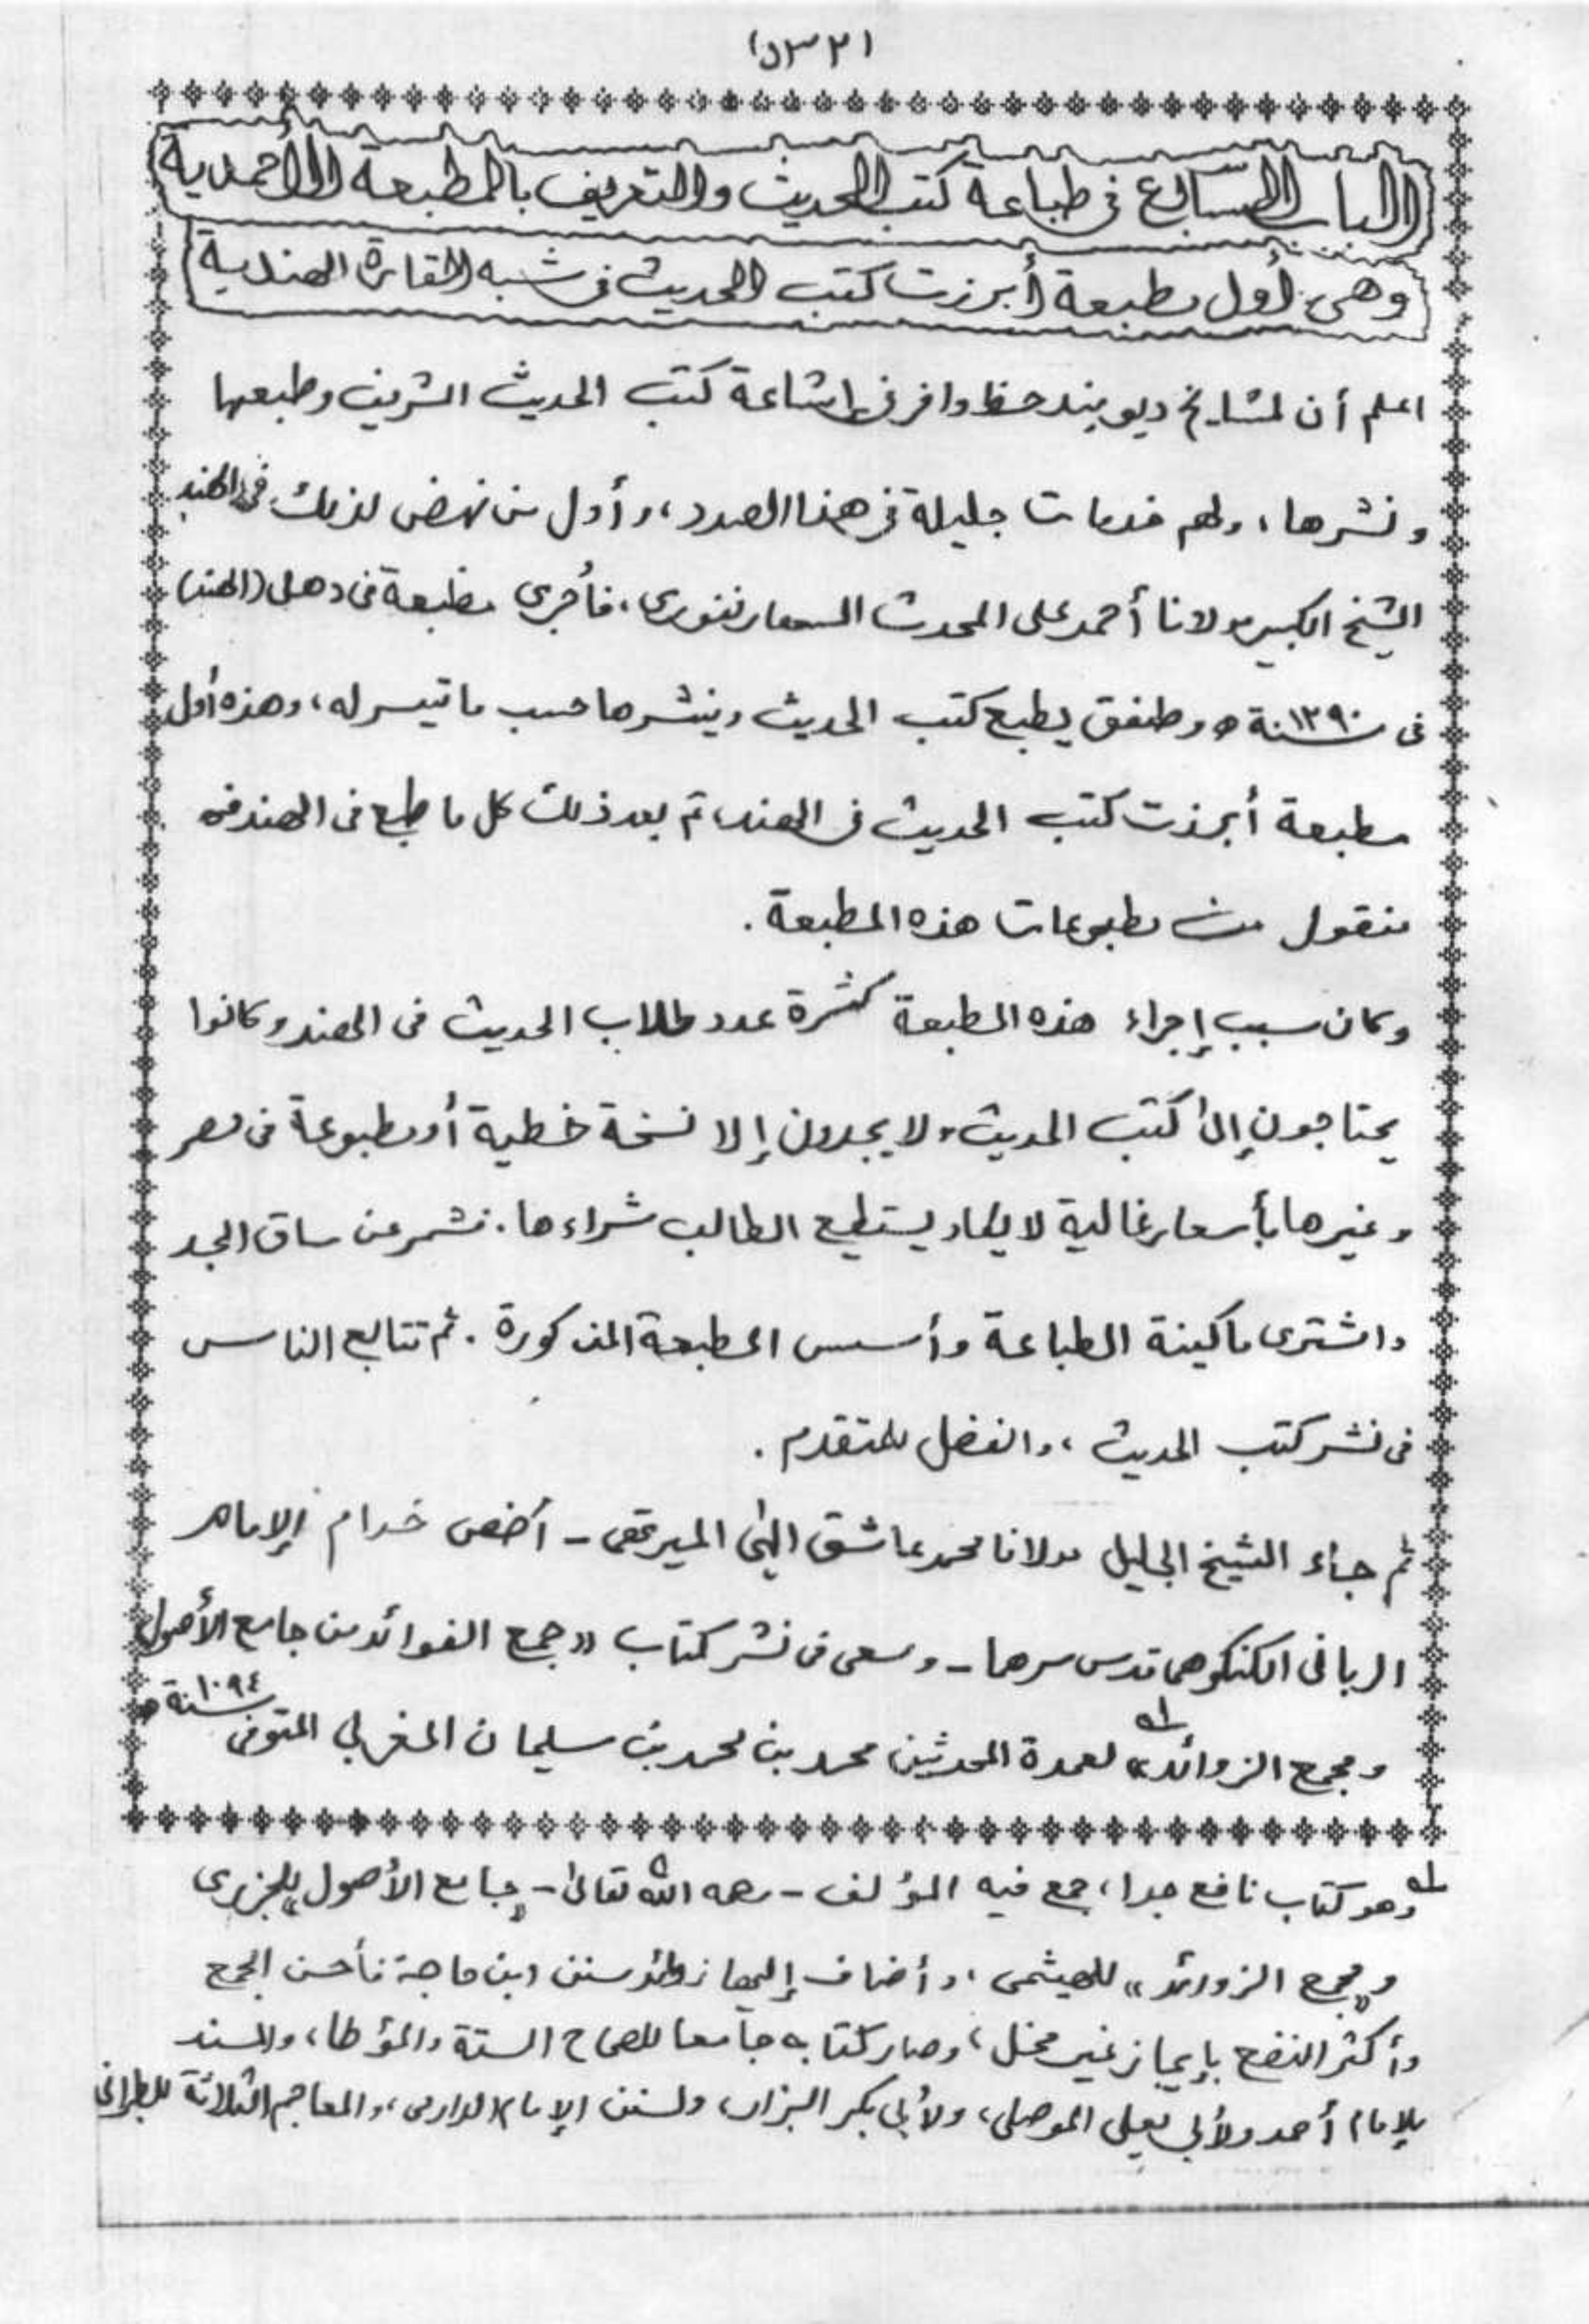 الباب السابع في طباعة كتب الحديث والتعريف بالمطبعة الأحمدية
وهي أول مطبعة أبرزت كتب الحديث في شبه القارة الهندية
اعلم أن لمشايخ ديوبند حظا وافر في إشاعة كتب الحديث الشريف وطبعها
ونشرها، ولهم خدمات جليلة في هذا الصدد، وأول من نهض لذلك في الهند
الشيخ الكبير مولانا أحمد على المحدث السهارنفوري، فأجرى مطبعة في دهلي (الهند)
في سنة ١٢٩٠ه‍ وطفق يطبع كتب الحديث وينشرها حسب ما تيسر له، وهذه أول
مطبعة أبرزت كتب الحديث في الهند، ثم بعد ذلك كل ما طبع في الهند فهو
منقول من مطبوعات هذه المطبعة.
وكان سبب إجراء هذه المطبعة كثرة عدد طلاب الحديث في الهند وكانوا
يحتاجون إلى كتب الحديث، ولا يجدون إلا نسخة خطية أو مطبوعة في مصر
وغيرها بأسعار غالية لا يكاد يستطيع الطالب شراءها. فشمر عن ساق الجد
واشترى ماكينة الطباعة وأسس المطبعة المذكورة. ثم تتابع الناس
في نشر كتب الحديث، والفضل للمتقدم.
ثم جاء الشيخ الجليل مولانا محمد عاشق إلهي الميرتهي - أخص خدام الإمام
الرباني الكنكوهي قدس سرهما - وسعى في نشر كتاب «جمع الفوائد من جامع الأصول
ومجمع الزوائد» لعمدة المحدثين محمد بن محمد بن سليمان المغربي المتوفى سنة ١٠٩٤ه‍
وهو كتاب نافع جدا، جمع فيه المؤلف - رحمه الله تعالى - «جامع الأصول» للجزري
و«مجمع الزوائد» للهيثمي، وأضاف إليها زوائد سنن ابن ماجة فأحسن الجمع
وأكثر النفع بإيجاز غير مخل، وصار كتابه جامعا للصحاح الستة والمؤطا، والمسند
للإمام أحمد ولأبي يعلى الموصلي، ولأبي بكر البزار، ولسنن الإمام الدارمي، والمعاجم الثلاثة للطبراني